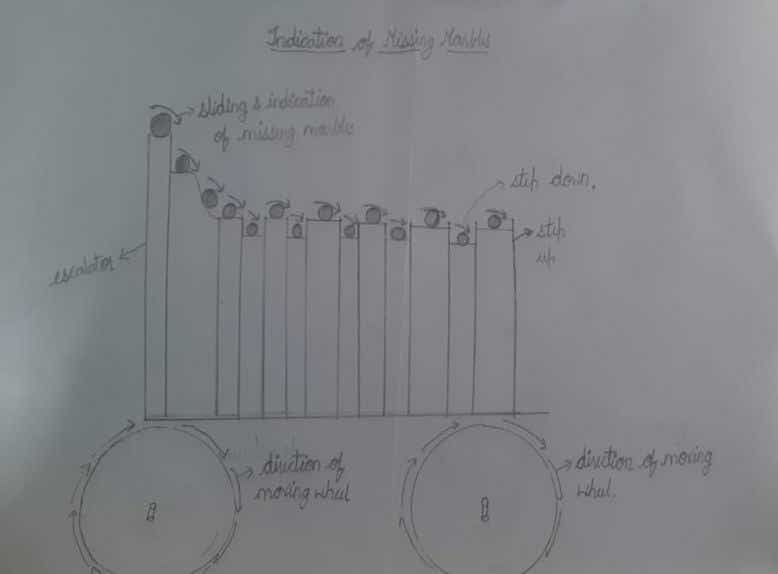 Indication of Missing Marble
sliding & indication
of missing marble
step down.
step
up
escalator
direction of
moving wheel
direction of moving
wheel.